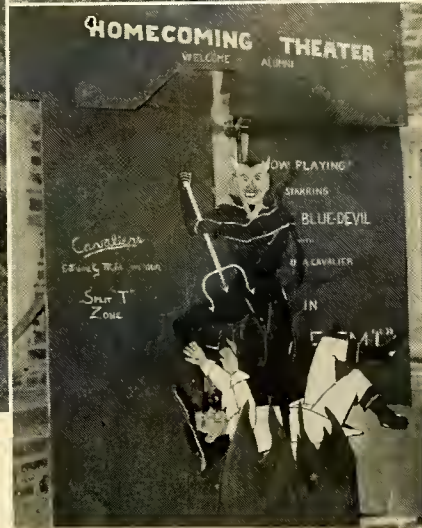 HOMECOMING THEATER
WELCOME ALUMNI
NOW PLAYING
STARRING
BLUE-DEVIL
WITH
A CAVALIER
IN
Cavaliers
"Split T"
Zone